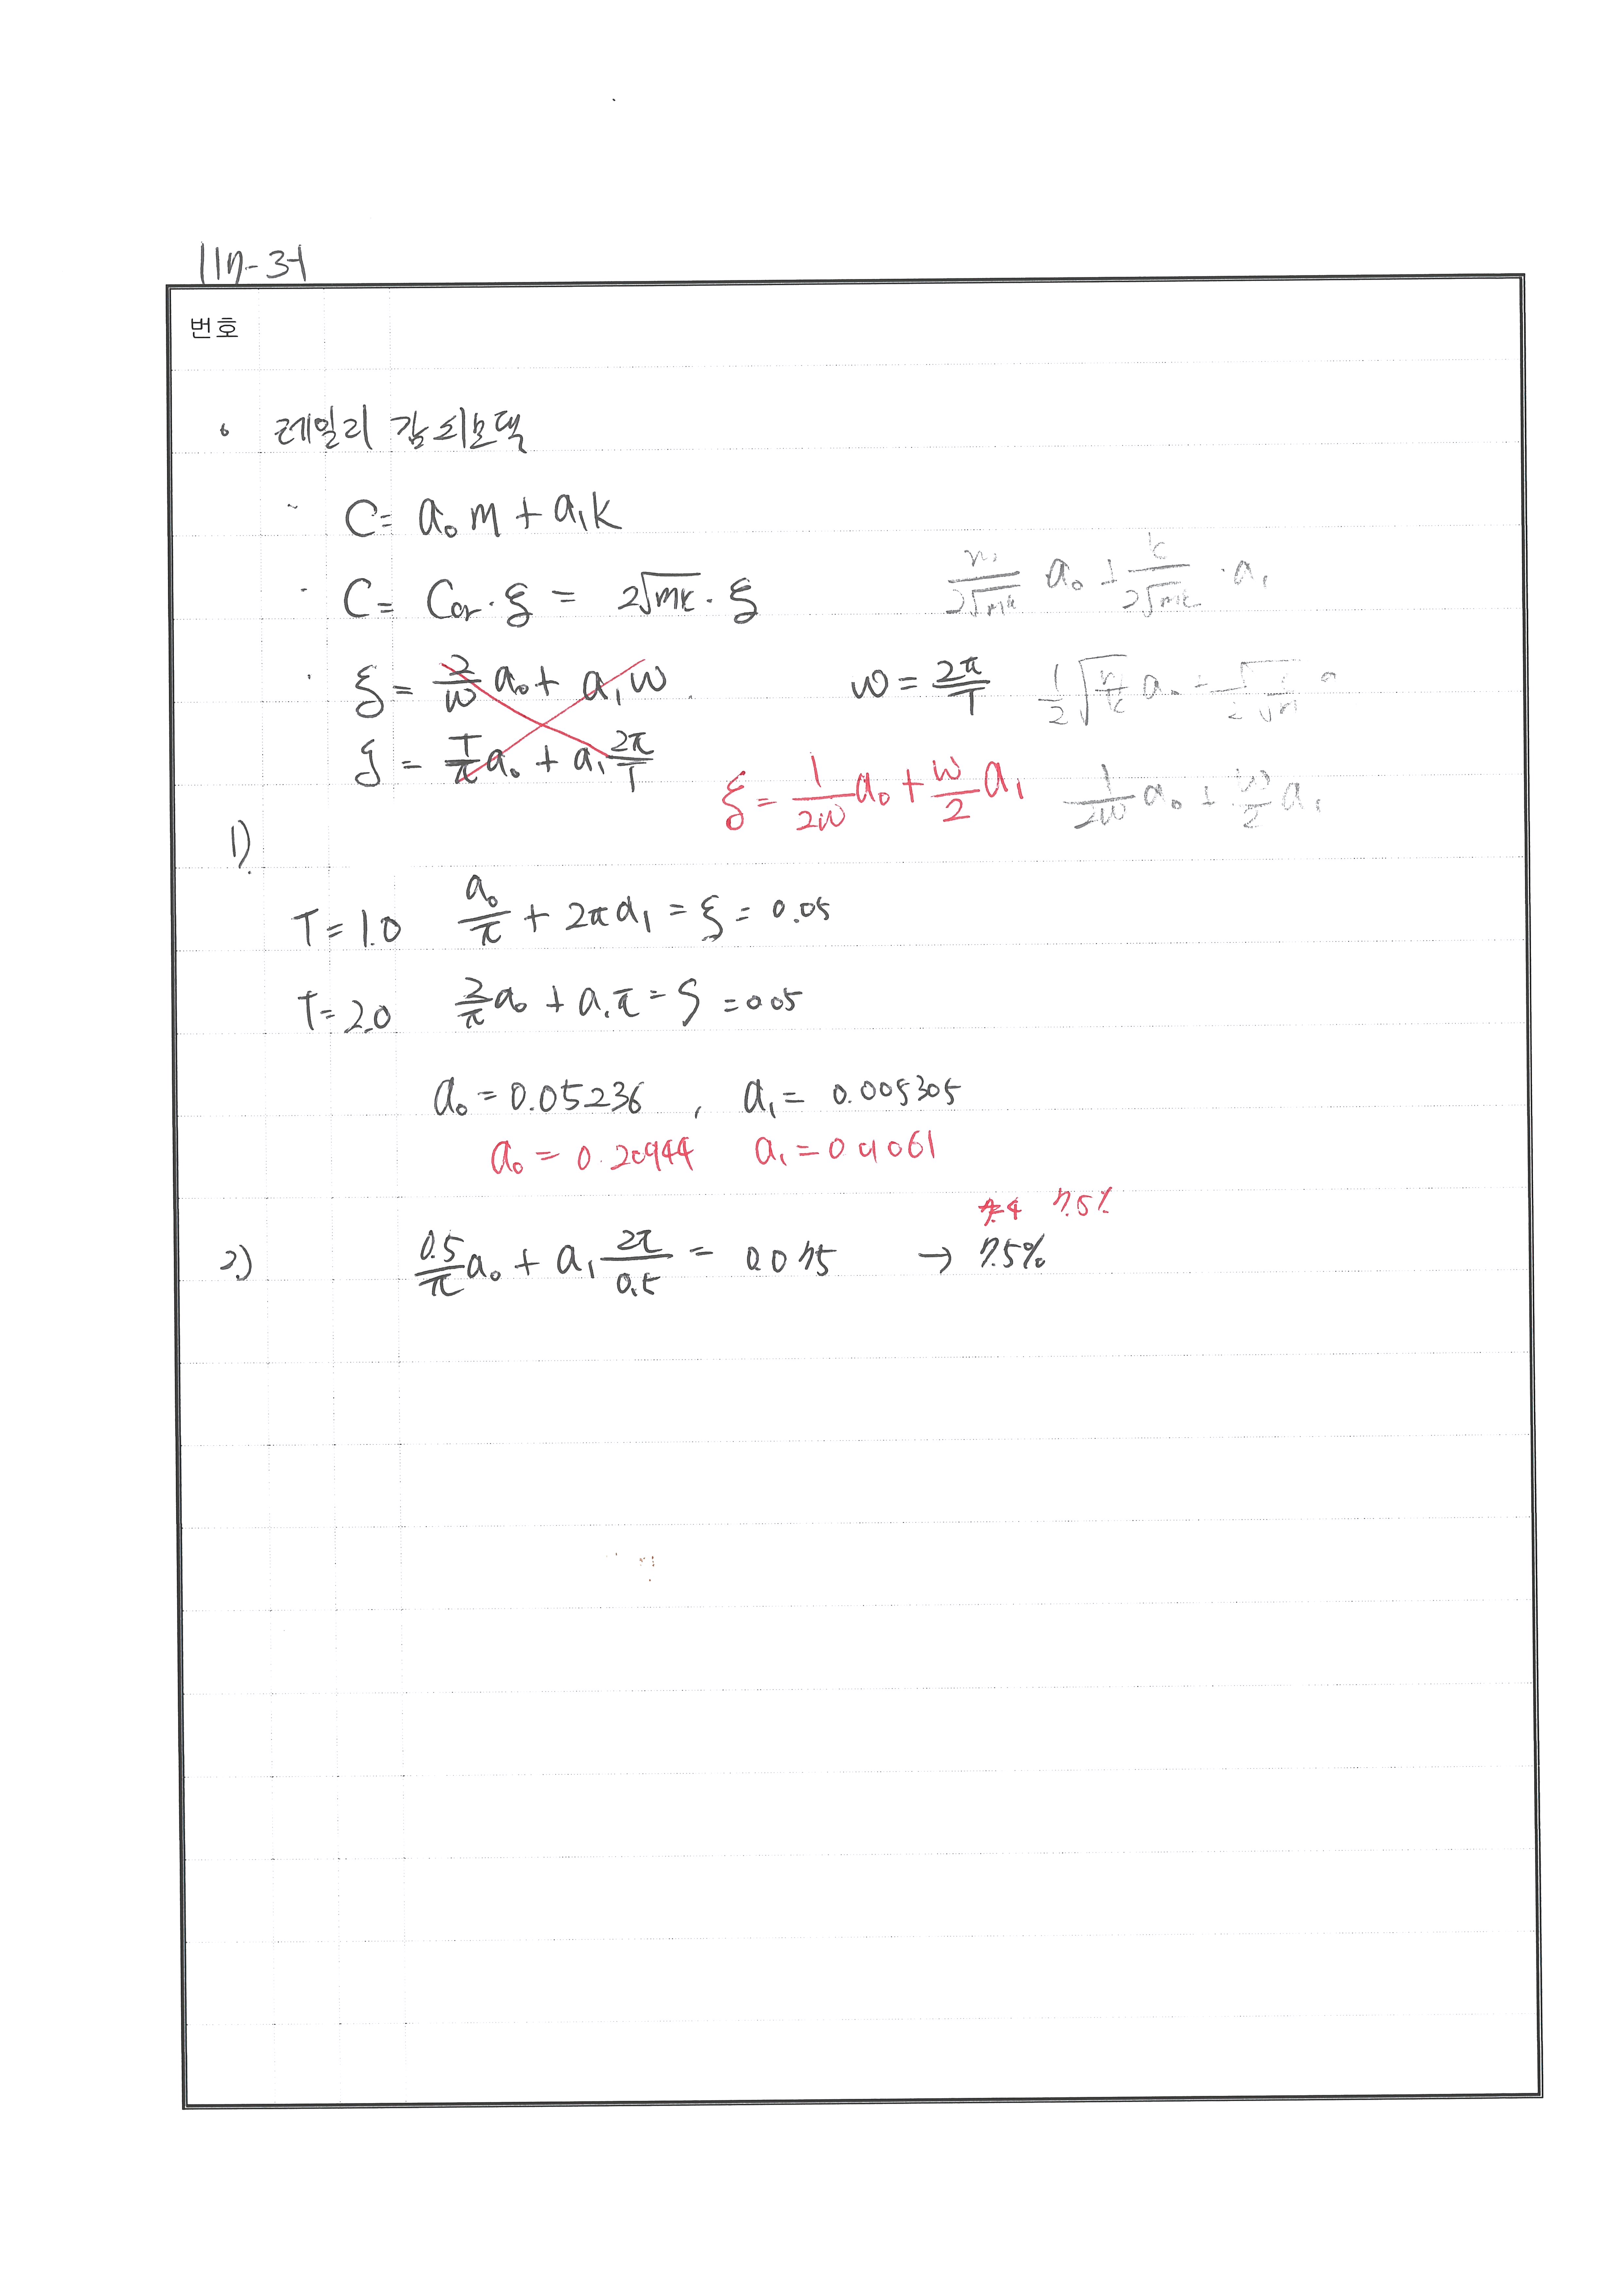 117-3-1
번호
레일리 감쇠모델
C = a₀m + a₁k
C = Ccr · ξ = 2√mk · ξ
m/2√mk a₀ + k/2√mk · a₁
ξ = 2/w a₀ + a₁w
w = 2π/T
ξ = T/π a₀ + a₁ 2π/T
ξ = 1/2w a₀ + w/2 a₁
1/2w a₀ + w/2 a₁
1)
T = 1.0 a₀/π + 2πa₁ = ξ = 0.05
T = 2.0 2/π a₀ + a₁π = ξ = 0.05
a₀ = 0.05236 , a₁ = 0.005305
a₀ = 0.20944 a₁ = 0.01061
7.5%
2) 0.5/π a₀ + a₁ 2π/0.5 = 0.075 → 7.5%